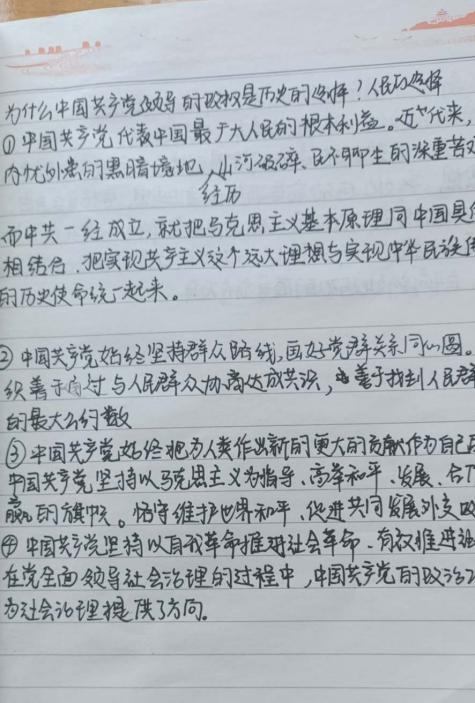 为什么中国共产党领导的政权是历史的选择？人民的选择
①中国共产党代表中国最广大人民的根本利益。近代以来，
内忧外患的黑暗境地，山河破碎、民不聊生的深重苦
经历
而中共一经成立，就把马克思主义基本原理同中国具体
相结合，把实现共产主义这个远大理想与实现中华民族
的历史使命统一起来。
②中国共产党始终坚持群众路线，画好党群关系同心圆。
织善于通过与人民群众协商达成共识，善于找到人民群
的最大公约数
③中国共产党始终把为人类作出新的更大的贡献作为自己
中国共产党坚持以马克思主义为指导、高举和平、发展、合
赢的旗帜。恪守维护世界和平、促进共同发展外交政
④中国共产党坚持以自我革命推进社会革命、有效推进
在党全面领导社会治理的过程中，中国共产党的政治
为社会治理提供了方向。